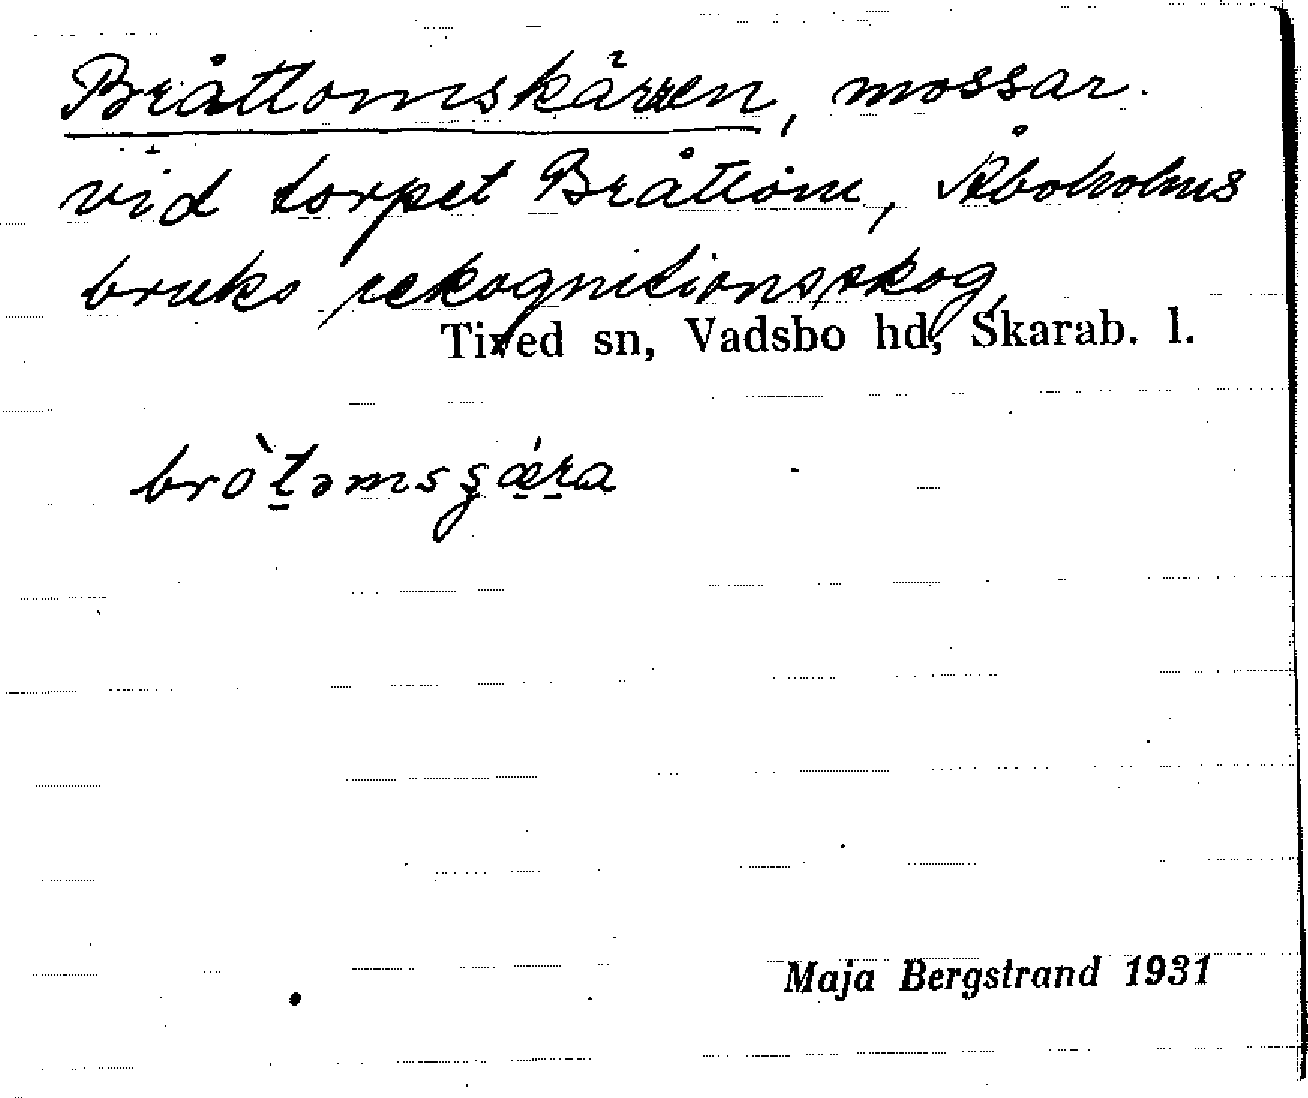 Bråttomskärren, mossar
vid torpet Bråttom, Åboholms
bruks rekognitionsskog,
Tived sn, Vadsbo hd, Skarab. l.
brò̱təmsʂǽ̱ṟa
Maja Bergstrand 1931